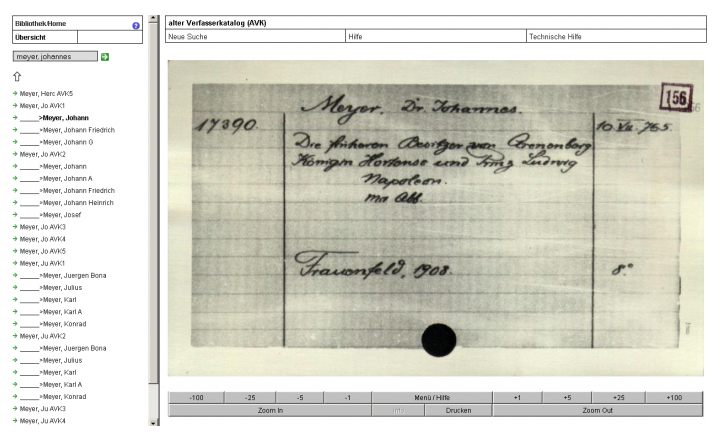 Bibliothek/Home
Übersicht
meyer, johannes
Meyer, Herc AVK5
Meyer, Jo AVK1
_____»Meyer, Johann
_____»Meyer, Johann Friedrich
_____»Meyer, Johann G
Meyer, Jo AVK2
_____»Meyer, Johann
_____»Meyer, Johann A
_____»Meyer, Johann Friedrich
_____»Meyer, Johann Heinrich
_____»Meyer, Josef
Meyer, Jo AVK3
Meyer, Jo AVK4
Meyer, Jo AVK5
Meyer, Ju AVK1
_____»Meyer, Juergen Bona
_____»Meyer, Julius
_____»Meyer, Karl
_____»Meyer, Karl A
_____»Meyer, Konrad
Meyer, Ju AVK2
_____»Meyer, Juergen Bona
_____»Meyer, Julius
_____»Meyer, Karl
_____»Meyer, Karl A
_____»Meyer, Konrad
Meyer, Ju AVK3
Meyer, Ju AVK4
alter Verfasserkatalog (AVK)
Neue Suche Hilfe Technische Hilfe
156
Meyer, Dr. Johannes.
17390. 10 VII. 765.
Die früheren Besitzer von Arenenberg
Königin Hortense und Prinz Ludwig
Napoleon.
Abb.
Frauenfeld, 1908. 8.°
-100 -25 -5 -1 Menü / Hilfe +1 +5 +25 +100
Zoom In Info Drucken Zoom Out